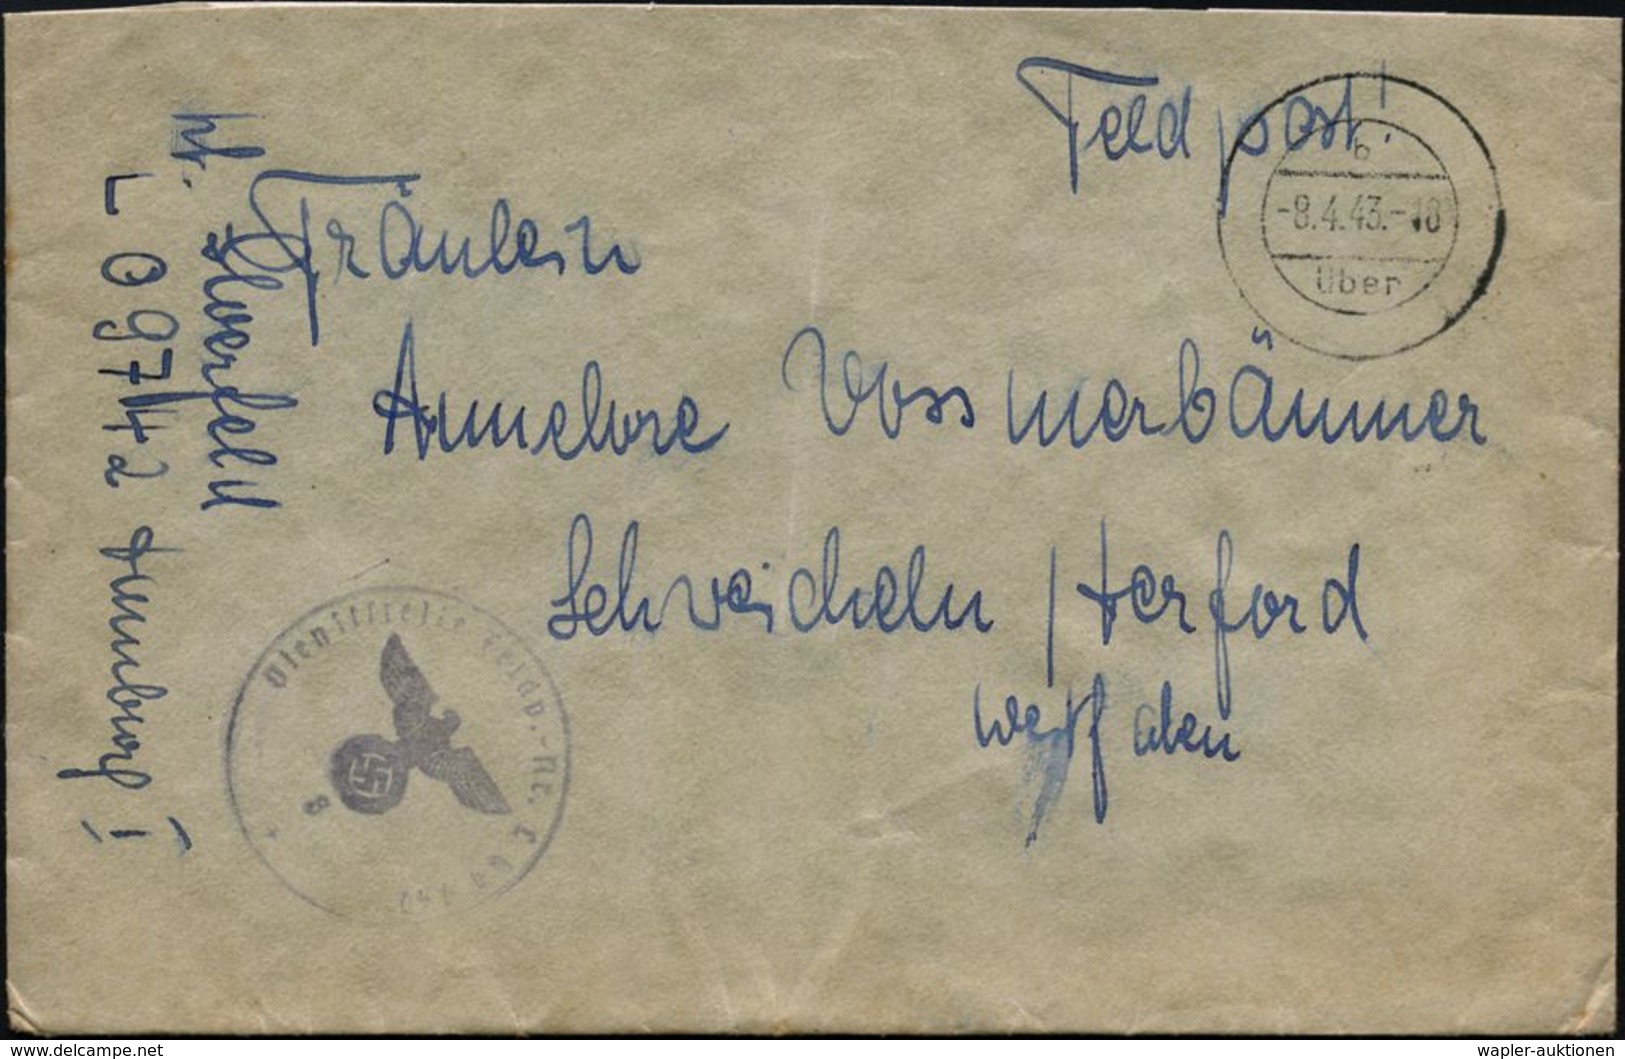 Feldpost
b
-8.4.43.-18
Über
Fräulein
Annelore Vossmerbäumer
Schweicheln / Herford
Westfalen
L 09742 Hamburg 1
Dienststelle Feldp.-Nr. L
B
www.delcampe.net
wapler-auktionen